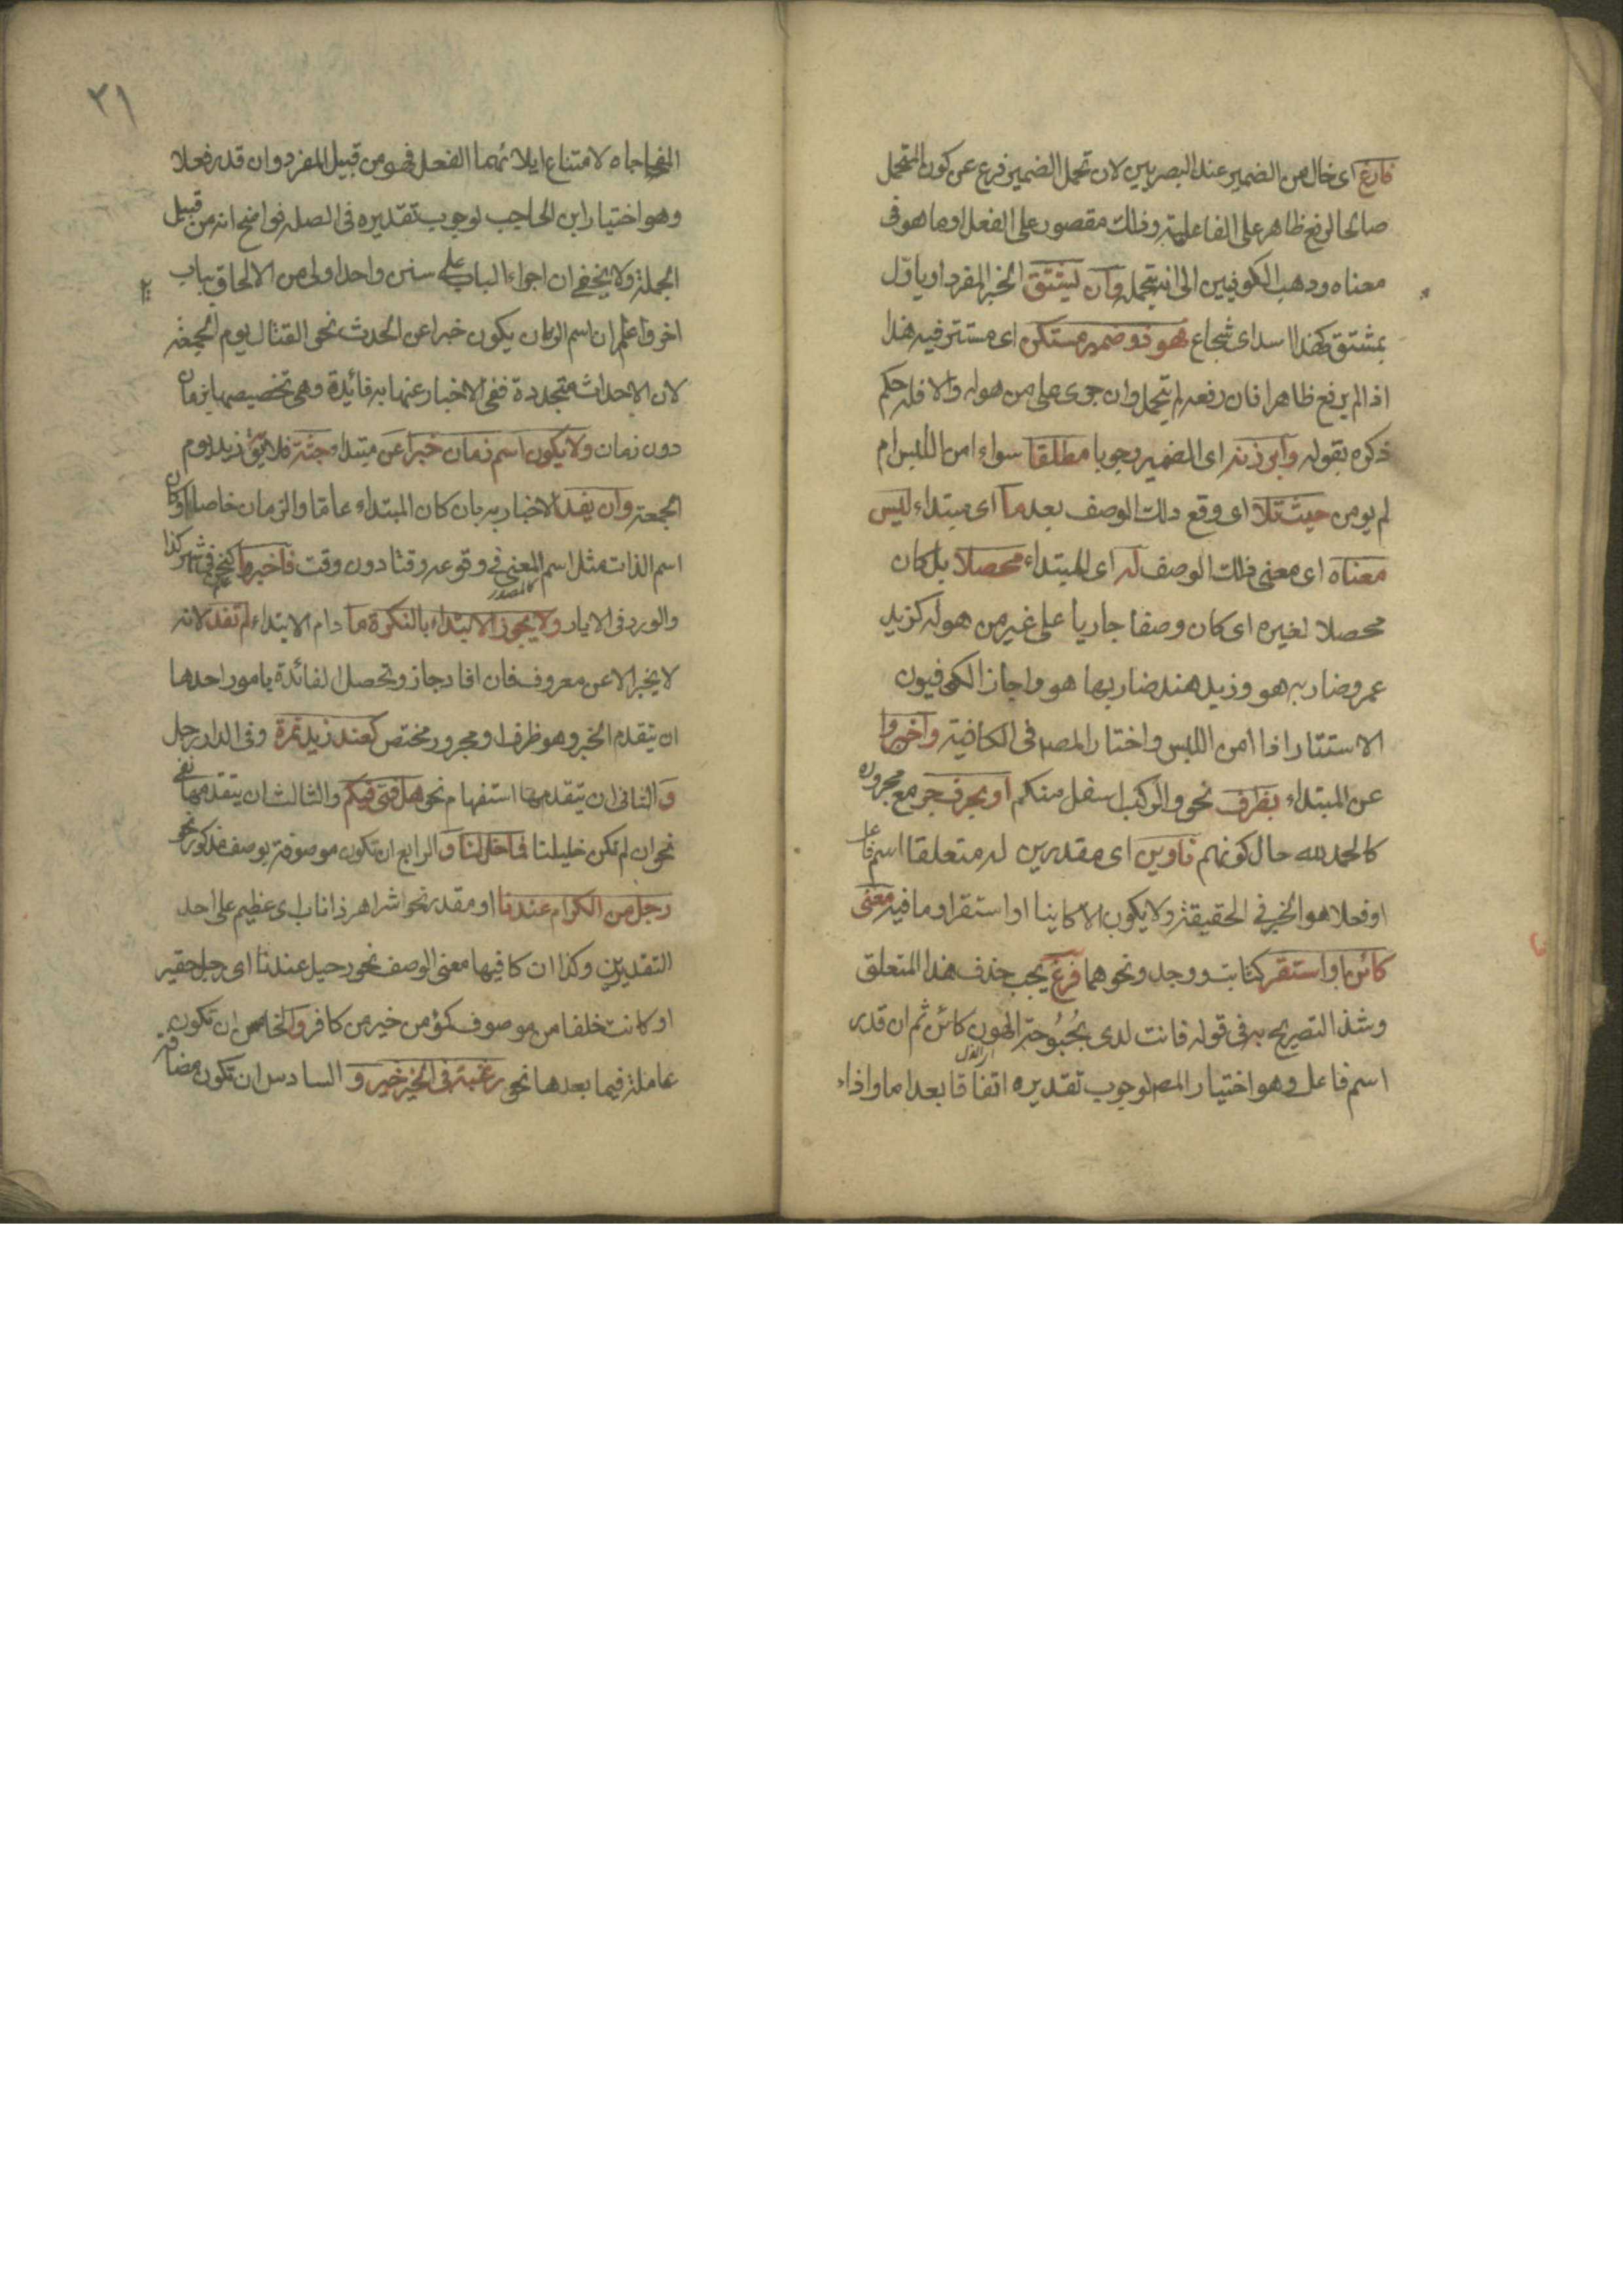 فارغ اى خال من الضمير عند البصريين لان تحمل الضمير فرع عن كون المتحمل
صالحا لرفع ظاهر على الفاعلية وذلك مقصور على الفعل او ما هو فى
معناه وذهب الكوفيين الى انه يتحمله وان يشتق الخبر المفرد او ياول
بمشتق كهذا اسد اى شجاع فهو ذو ضمير مستكن اى مستتر فيه هذا
اذا لم يرفع ظاهرا فان رفعه لم يتحمل وان جرى على من هو له والا فله حكم
ذكره بقوله وابرزنه اى الضمير وجوبا مطلقا سواء امن اللبس ام
لم يومن حيث تلا اى وقع ذلك الوصف بعد ما اى مبتداء ليس
معناه اى معنى ذلك الوصف له اى للمبتداء محصلا بل كان
محصلا لغيره اى كان وصفا جاريا على غير من هو له كزيد
عمرو ضاربه هو وزيد هند ضاربها هو واجاز الكوفيون
الاستتار اذا امن اللبس واختار المصه فى الكافية واخبروا
عن المبتداء بظرف نحو والركب اسفل منكم او بحرف جر مع مجروره
كالحمد لله حال كونهم ناوين اى مقدرين له متعلقا اسم فاعل
او فعلا هو الخبر فى الحقيقة ولا يكون الا كاينا او استقر او ما فيه معنى
كائن او استقر كثابت ووجد ونحوهما فرع يجب حذف هذا المتعلق
وشذ التصريح به فى قوله فانت لدى بحبوحة الهون كائن ثم ان قدر
اسم فاعل وهو اختيار المصه لوجوب تقديره اتفاقا بعد اما واذاء
٢١
الفجاءه لامتناع ايلائهما الفعل فهو من قبيل المفرد وان قدر فعلا
وهو اختيار ابن الحاجب لوجوب تقديره فى الصله فواضح انه من قبيل
الجملة ولا يخفى ان اجراء الباب على سنن واحد اولى من الالحاق بباب
اخر واعلم ان اسم الزمان يكون خبرا عن الحدث نحو القتال يوم الجمعة
لان الاحداث متجددة ففى الاخبار عنها به فائدة وهى تخصيصها بزمان
دون زمان ولا يكون اسم زمان خبرا عن مبتداء جثة فلا يق زيد يوم
الجمعة وان يفد الاخبار به بان كان المبتداء عاما والزمان خاصا او كان
اسم الذات مثل اسم المعنى فى وقوعه وقتا دون وقت فاخبرا كنحن فى شهر كذا
والورد فى الايار ولا يجوز الابتداء بالنكرة ما دام الابتداء لم تفد لانه
لا يخبر الا عن معروف فان افاد جاز وتحصل الفائدة بامور احدها
ان يتقدم الخبر وهو ظرف او مجرور مختص كعند زيد نمرة وفى الدار رجل
و الثانى ان يتقدمها استفهام نحو هل فتى فيكم والثالث ان يتقدمها نفى
نحو ان لم تكن خليلنا فما خل لنا و الرابع ان تكون موصوفة بوصف مذكور نحو
رجل من الكرام عندنا او مقدر نحو اشر اهر ذا ناب اى عظيم على احد
التقديرين وكذا ان كا فيها معنى الوصف نحو رجيل عندنا اى رجل حقير
او كانت خلفا من موصوف كؤمن خير من كافر والخامس ان تكون
عاملة فيما بعدها نحو رغبة فى الخير خير و السادس ان تكون مضافة